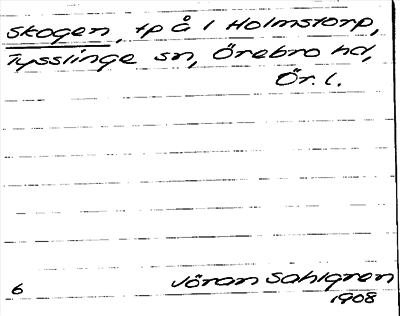 Skogen, tp å 1 Holmstorp,
Tysslinge sn, Örebro hd,
Ör. l.
6 Jöran Sahlgren
1908